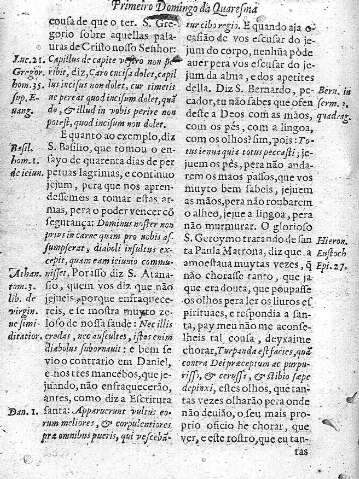 Primeiro Domingo da Quaresma
cousa de que o ter. S. Gre-
gorio sobre aquellas pala-
uras de Cristo nosso Senhor:
Luc. 21. Capillus de capite vestro non pe-
Gregor. ribit, diz, Caro incisa dolet, capil-
hom. 35. lus incisus non dolet, cur timetis
sup. E- ne pereat quod incisum dolet, quã-
uang. do, & illud in vobis perire non
potest, quod incisum non dolet.
E quanto ao exemplo, diz
Basil. S. Basilio, que tomou o en-
hom. 1. sayo de quarenta dias de per
de ieiun. petuas lagrimas, e continuo
jejum, pera que nos apren-
dessemos a tomar estas ar-
mas, pera o poder vencer cõ
segurança: Dominus noster non
prius in carne quam pro nobis as-
sumpserat, diaboli insultus ex-
cepit, quam eam ieiunio commu-
Athan. nisset. Por asso diz S. Atana-
tom. 3. sio, quem vos diz que não
lib. de jejueis, porque enfraquece-
virgin. reis, e se mostra muyto zelo-
ne siue me- so de nossa saude: Nec illis
ditatior. credas, nec auscultes, istos enim
diabolus subornauit: e bem se
vio o contrario em Daniel,
e nos tres mancebos, que je-
juando, não enfraquecerão,
antes, como diz a Escritura
Dan. 1. santa: Apparuerunt vultus eo-
rum meliores, & corpulentiores
præ omnibus pueris, qui vescebã-
tur cibo regio. E quando aja o-
casião de vos escusar do je-
jum do corpo, nenhũa póde
auer pera vos escusar do je-
jum da alma, e dos apetites
della. Diz S. Bernardo, pe- Bern. in
cador, tu não sabes que ofen serm. 3.
deste a Deos com as mãos, quad. ag.
com os pés, com a lingoa,
com os olhos? sim, pois: To-
tus ieiuna qui totus peccasti; je-
juem os pés, pera não anda-
rem os maos passos, que vos
muyto bem sabeis, jejuem
as mãos, pera não roubarem
o alheo, jejue a lingoa, pera
não murmurar. O glorioso
S. Geroymo tratando de san Hieron.
ta Paula Matrona, diz que a Eustoch
amoestaua muytas vezes, q̃ Epi. 27.
não chorasse tanto, que ja
que era douta, que poupasse
os olhos pera ler os liuros es
pirituaes, e respondia a san-
ta, pay meu não me aconse-
lheis tal cousa, deyxaime
chorar, Turpanda est facies, quã
contra Dei præceptum ac purpu-
risso, & cerosso, & stibio sæpe
depinxi, estes olhos, que tan-
tas vezes olharão pera onde
não deuião, o seu mais pro-
prio oficio he chorar, que
ver, e este rostro, que eu tan-
tas